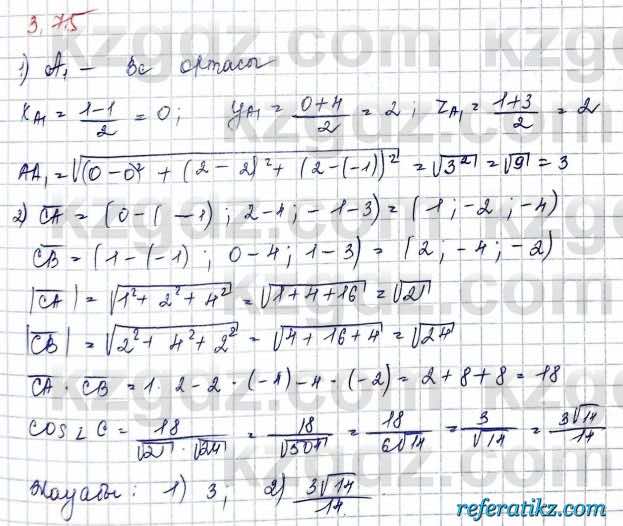 3.75
1) A₁ – BC ортасы
x_{A1} = \frac{1-1}{2} = 0; y_{A1} = \frac{0+4}{2} = 2; z_{A1} = \frac{1+3}{2} = 2
AA₁ = √((0-0)² + (2-2)² + (2-(-1))²) = √3² = √9 = 3
2) \overline{CA} = (0-(-1); 2-4; -1-3) = (1; -2; -4)
\overline{CB} = (1-(-1); 0-4; 1-3) = (2; -4; -2)
|\overline{CA}| = √(1²+2²+4²) = √(1+4+16) = √21
|\overline{CB}| = √(2²+4²+2²) = √(4+16+4) = √24
\overline{CA} · \overline{CB} = 1·2-2·(-4)-4·(-2) = 2+8+8 = 18
cos∠C = \frac{18}{√21·√24} = \frac{18}{√504} = \frac{18}{6√14} = \frac{3}{√14} = \frac{3√14}{14}
Жауабы: 1) 3; 2) \frac{3√14}{14}
referatikz.com